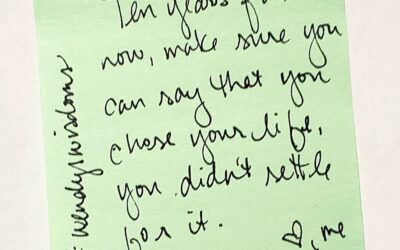 Ten years from
now, make sure you
can say that you
chose your life,
you didn't settle
for it.
♡, me
: wendyswisdoms